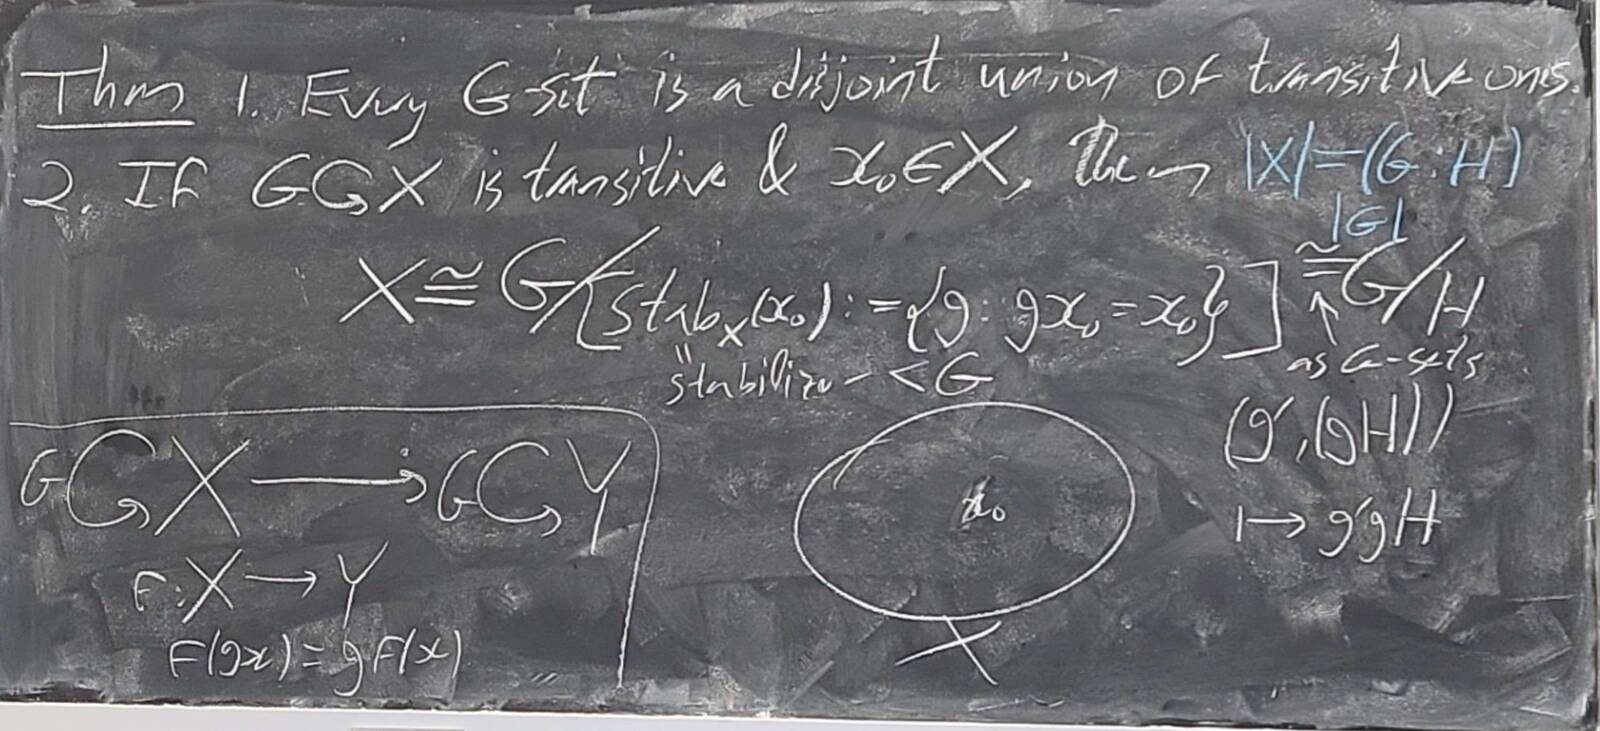 Thm 1. Every G-set is a disjoint union of transitive ones.
2. If G↻X is transitive & x₀∈X, then |X|=(G:H)
|G|
X≅G/[stab_X(x₀):={g: gx₀=x₀}] ≅G/H
" stabilizer <G
↑ as G-sets
(g',(gH))
↦ g'gH
G↻X → G↻Y
F:X→Y
F(gx)=gF(x)
x₀
X